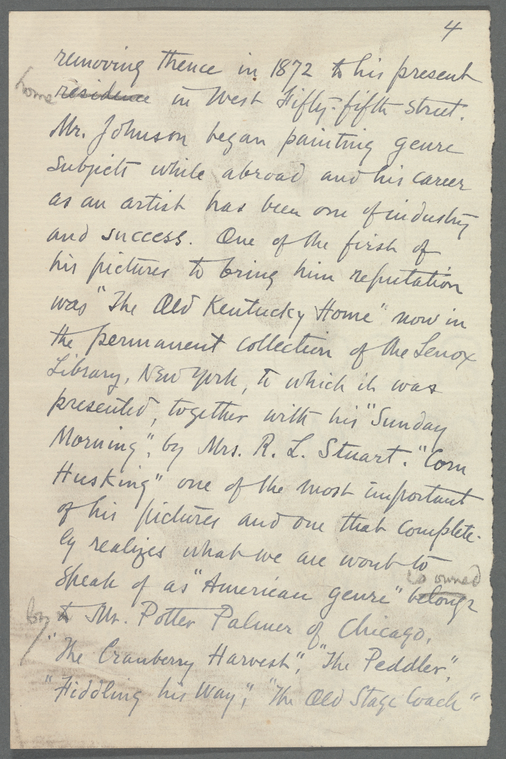 4
removing thence in 1872 to his present
home residence in West Fifty-fifth street.
Mr. Johnson began painting genre
subjects while abroad and his career
as an artist has been one of industry
and success. One of the first of
his pictures to bring him reputation
was "The Old Kentucky Home" now in
the permanent collection of the Lenox
Library, New York, to which it was
presented, together with his "Sunday
Morning", by Mrs. R. L. Stuart. "Corn
Husking" one of the most important
of his pictures and one that complete-
ly realizes what we are wont to
is owned
speak of as "American genre" belongs
by to Mr. Potter Palmer of Chicago.
"The Cranberry Harvest", "The Peddler",
"Fiddling his Way", "The Old Stage Coach"